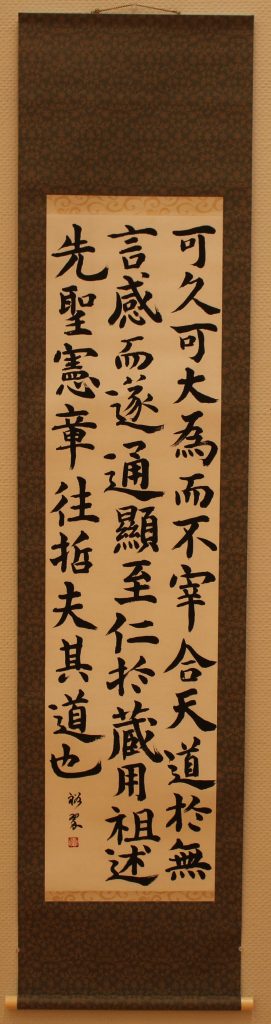 可久可大為而不宰合天道於無
言感而遂通顯至仁於蔵用祖述
先聖憲章往哲夫其道也